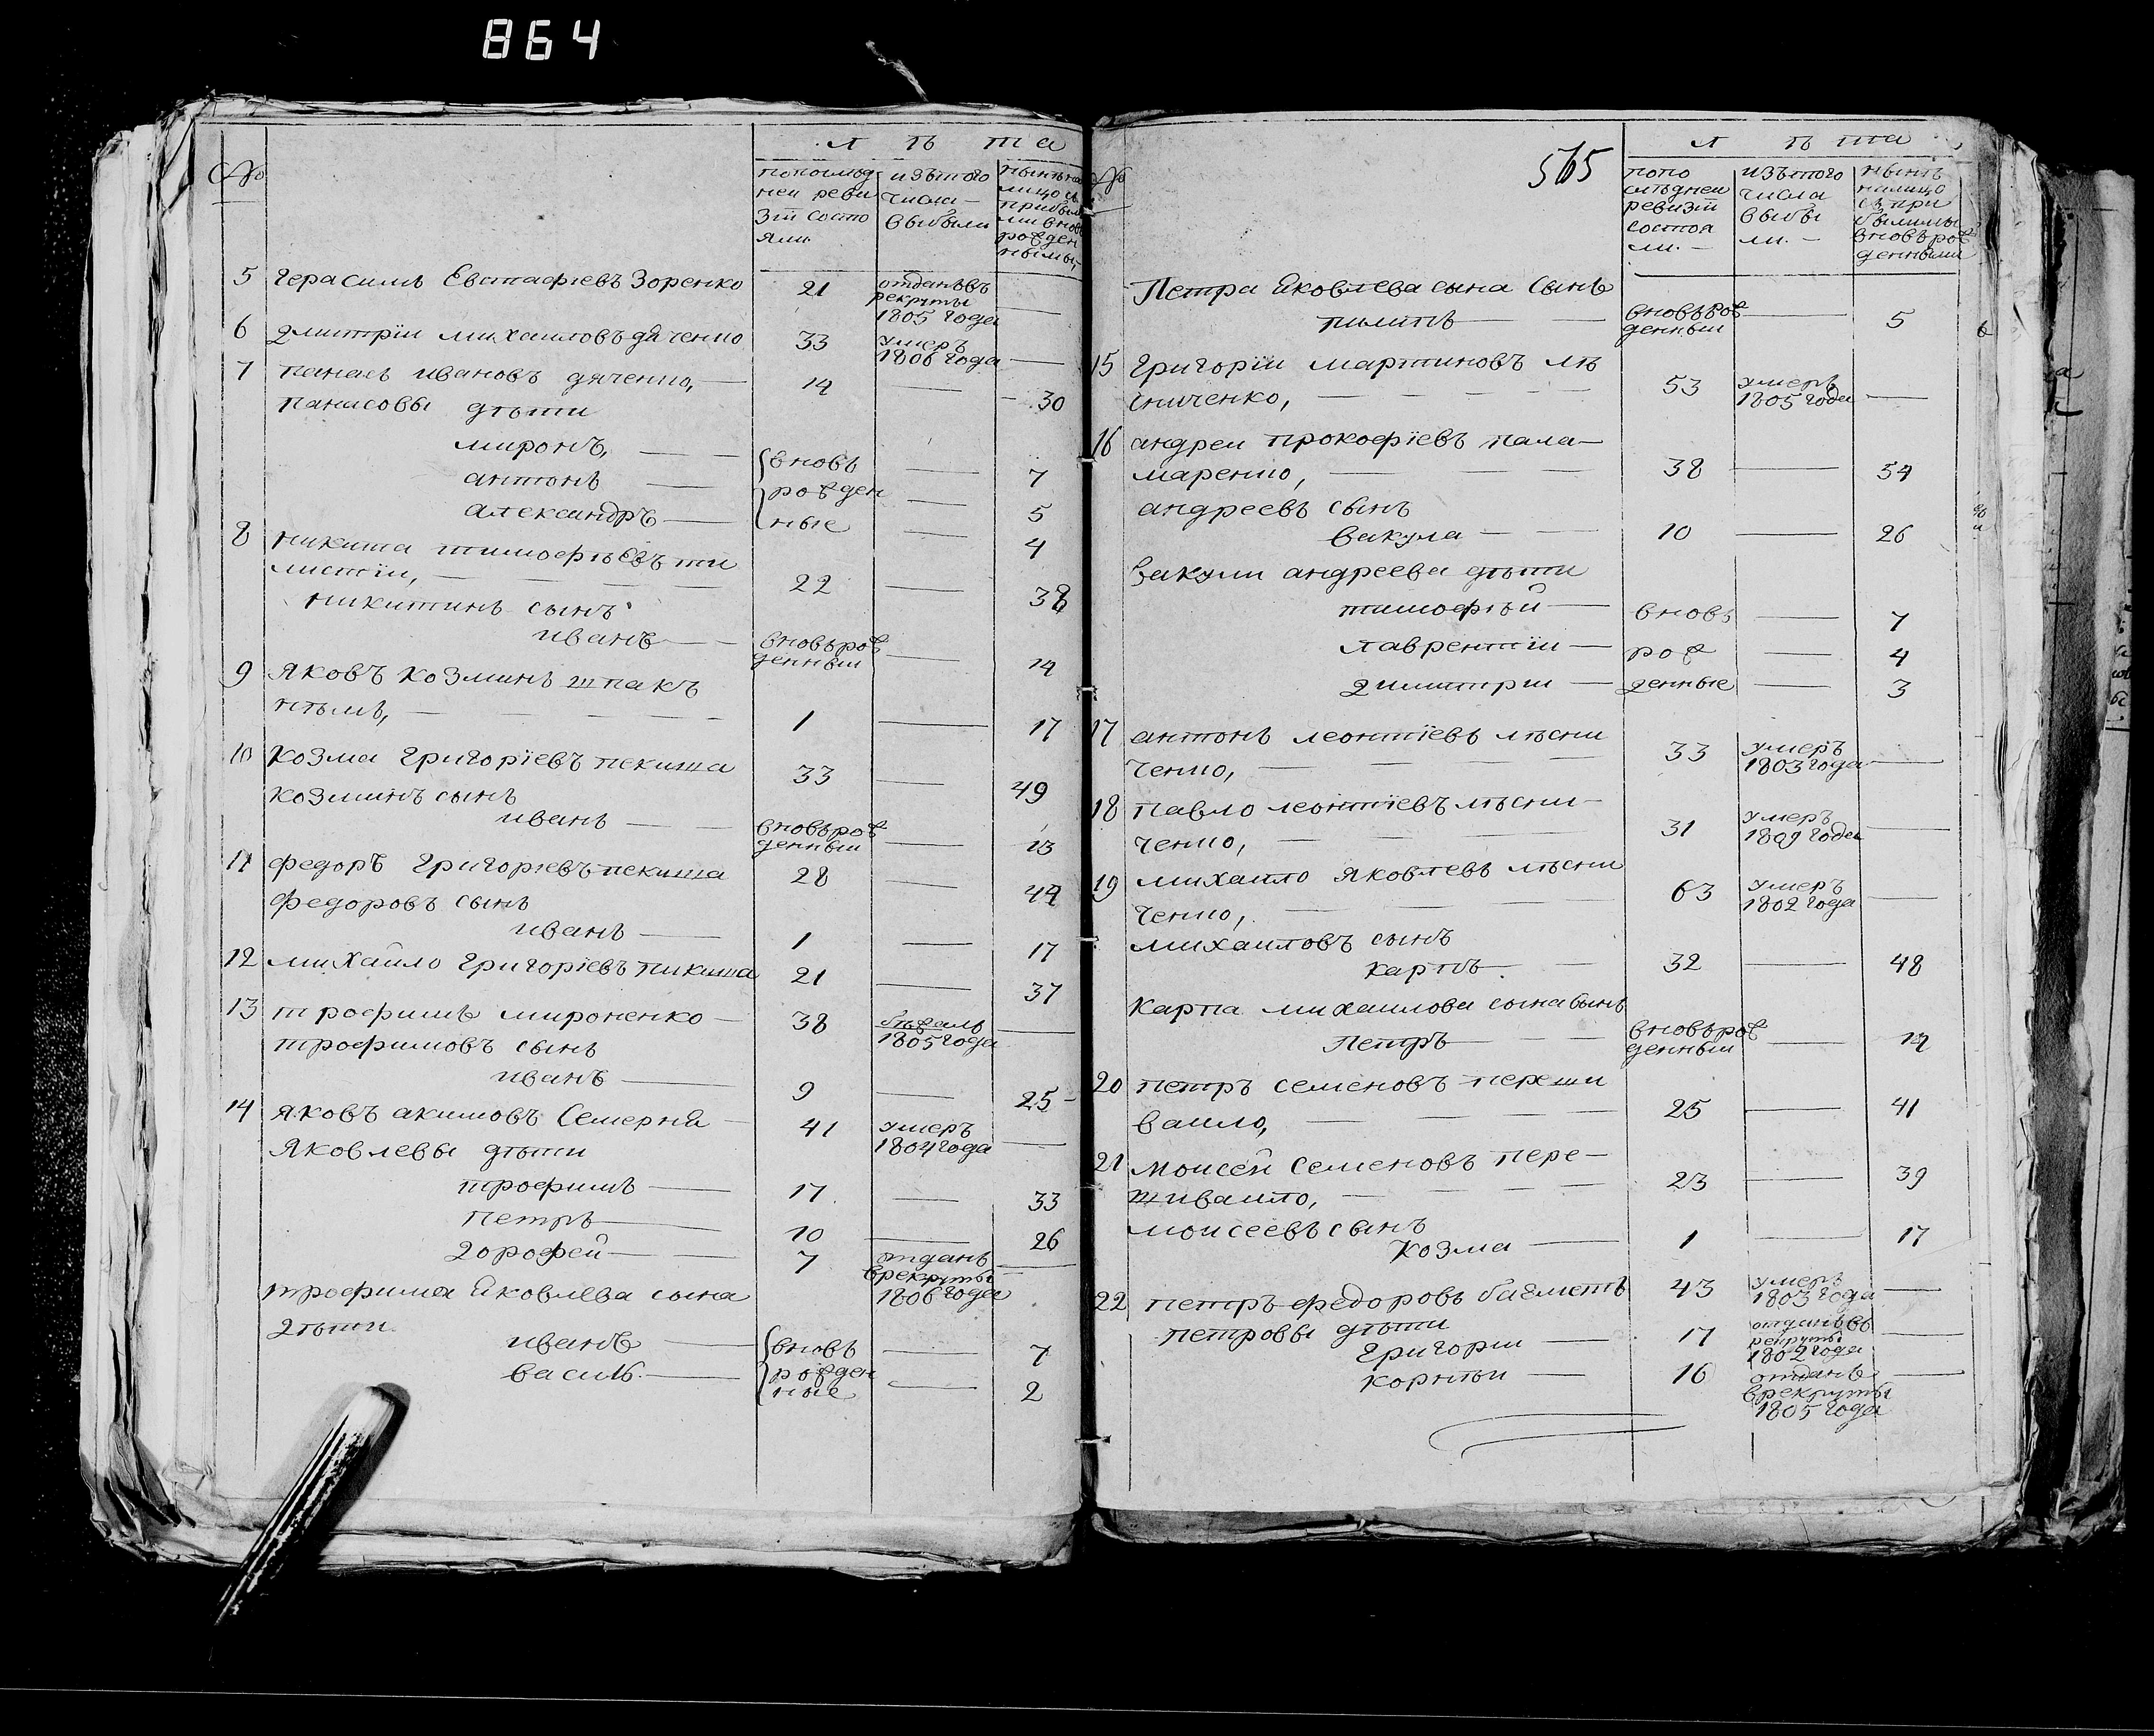 864
№
Лѣта
попослѣд
ней реви
зіи состо
яли
изътого
числа
выбыли
нынѣна
лицо съ
прибыл
ми вновь
рожден
ными
5 Герасимъ Евстафіевъ Зоренко 21 отданъвъ
рекруты
1805 года —
6 Дмитріи михаиловъ дяченко 33 умеръ
1806 года —
7 панасъ ивановъ дяченко, — 14 — 30
панасовы дѣти
миронъ, — вновь — 7
антонъ — рожден — 5
александръ — ные — 4
8 никита тимофѣевъ ти
листіи, — 22 — 38
никитинъ сынъ
иванъ — вновьрож
денныи — 14
9 яковъ козминъ шпакъ
нѣмъ, — 1 — 17
10 козма григоріевъ пекиша 33 — 49
козминъ сынъ
иванъ — вновьрож
денныи — 13
11 федоръ григоріевъ пекиша 28 — 44
федоровъ сынъ
иванъ — 1 — 17
12 михайло григоріевъ пикиша 21 — 37
13 трофимъ мироненко — 38 бѣжалъ
1805 года —
трофимовъ сынъ
иванъ — 9 — 25
14 яковъ акимовъ Семерня — 41 умеръ
1804 года —
Яковлевы дѣти
трофимъ — 17 — 33
петръ — 10 — 26
дорофей — 7 отданъ
врекруты
1806 года —
трофима Яковлева сына
дѣти
иванъ — вновь — 7
василь — рожден
ные — 2
565
№
Лѣта
попо
слѣднеи
ревизіи
состоя
ли. —
изътого
числа
выбы
ли. —
нынѣ
налицо
съ при
былыми
вновьрож
денными
Петра Яковлева сына сынъ
пилипъ — вновьрож
денныи — 5
15 Григоріи мартиновъ лѣ
сниченко, — 53 умеръ
1805 года —
16 андреи прокофіевъ пала—
маренко, — 38 — 54
андреевъ сынъ
вакула — 10 — 26
Вакули андреева дѣти
тимофѣй — вновь — 7
лаврентіи — рож — 4
димитрии — денные — 3
17 антонъ леонтіевъ лѣсни
ченко, — 33 умеръ
1803 года —
18 павло леонтіевъ лѣсни—
ченко, — 31 умеръ
1809 года —
19 михаило яковлевъ лѣсни
ченко, — 63 умеръ
1802 года —
михаиловъ сынъ
карпъ — 32 — 48
карпа михаилова сына сынъ
Петръ — вновьрож
денныи — 14
20 петръ семеновъ переши
ваило, — 25 — 41
21 моисей семеновъ пере—
шиваило, — 23 — 39
моисеевъ сынъ
козма — 1 — 17
22 петръ федоровъ бажметъ 43 умеръ
1803 года —
петровы дѣти
григории — 17 отданъвъ
рекруты
1802 года —
корнѣи — 16 отданъ
врекруты
1805 года —